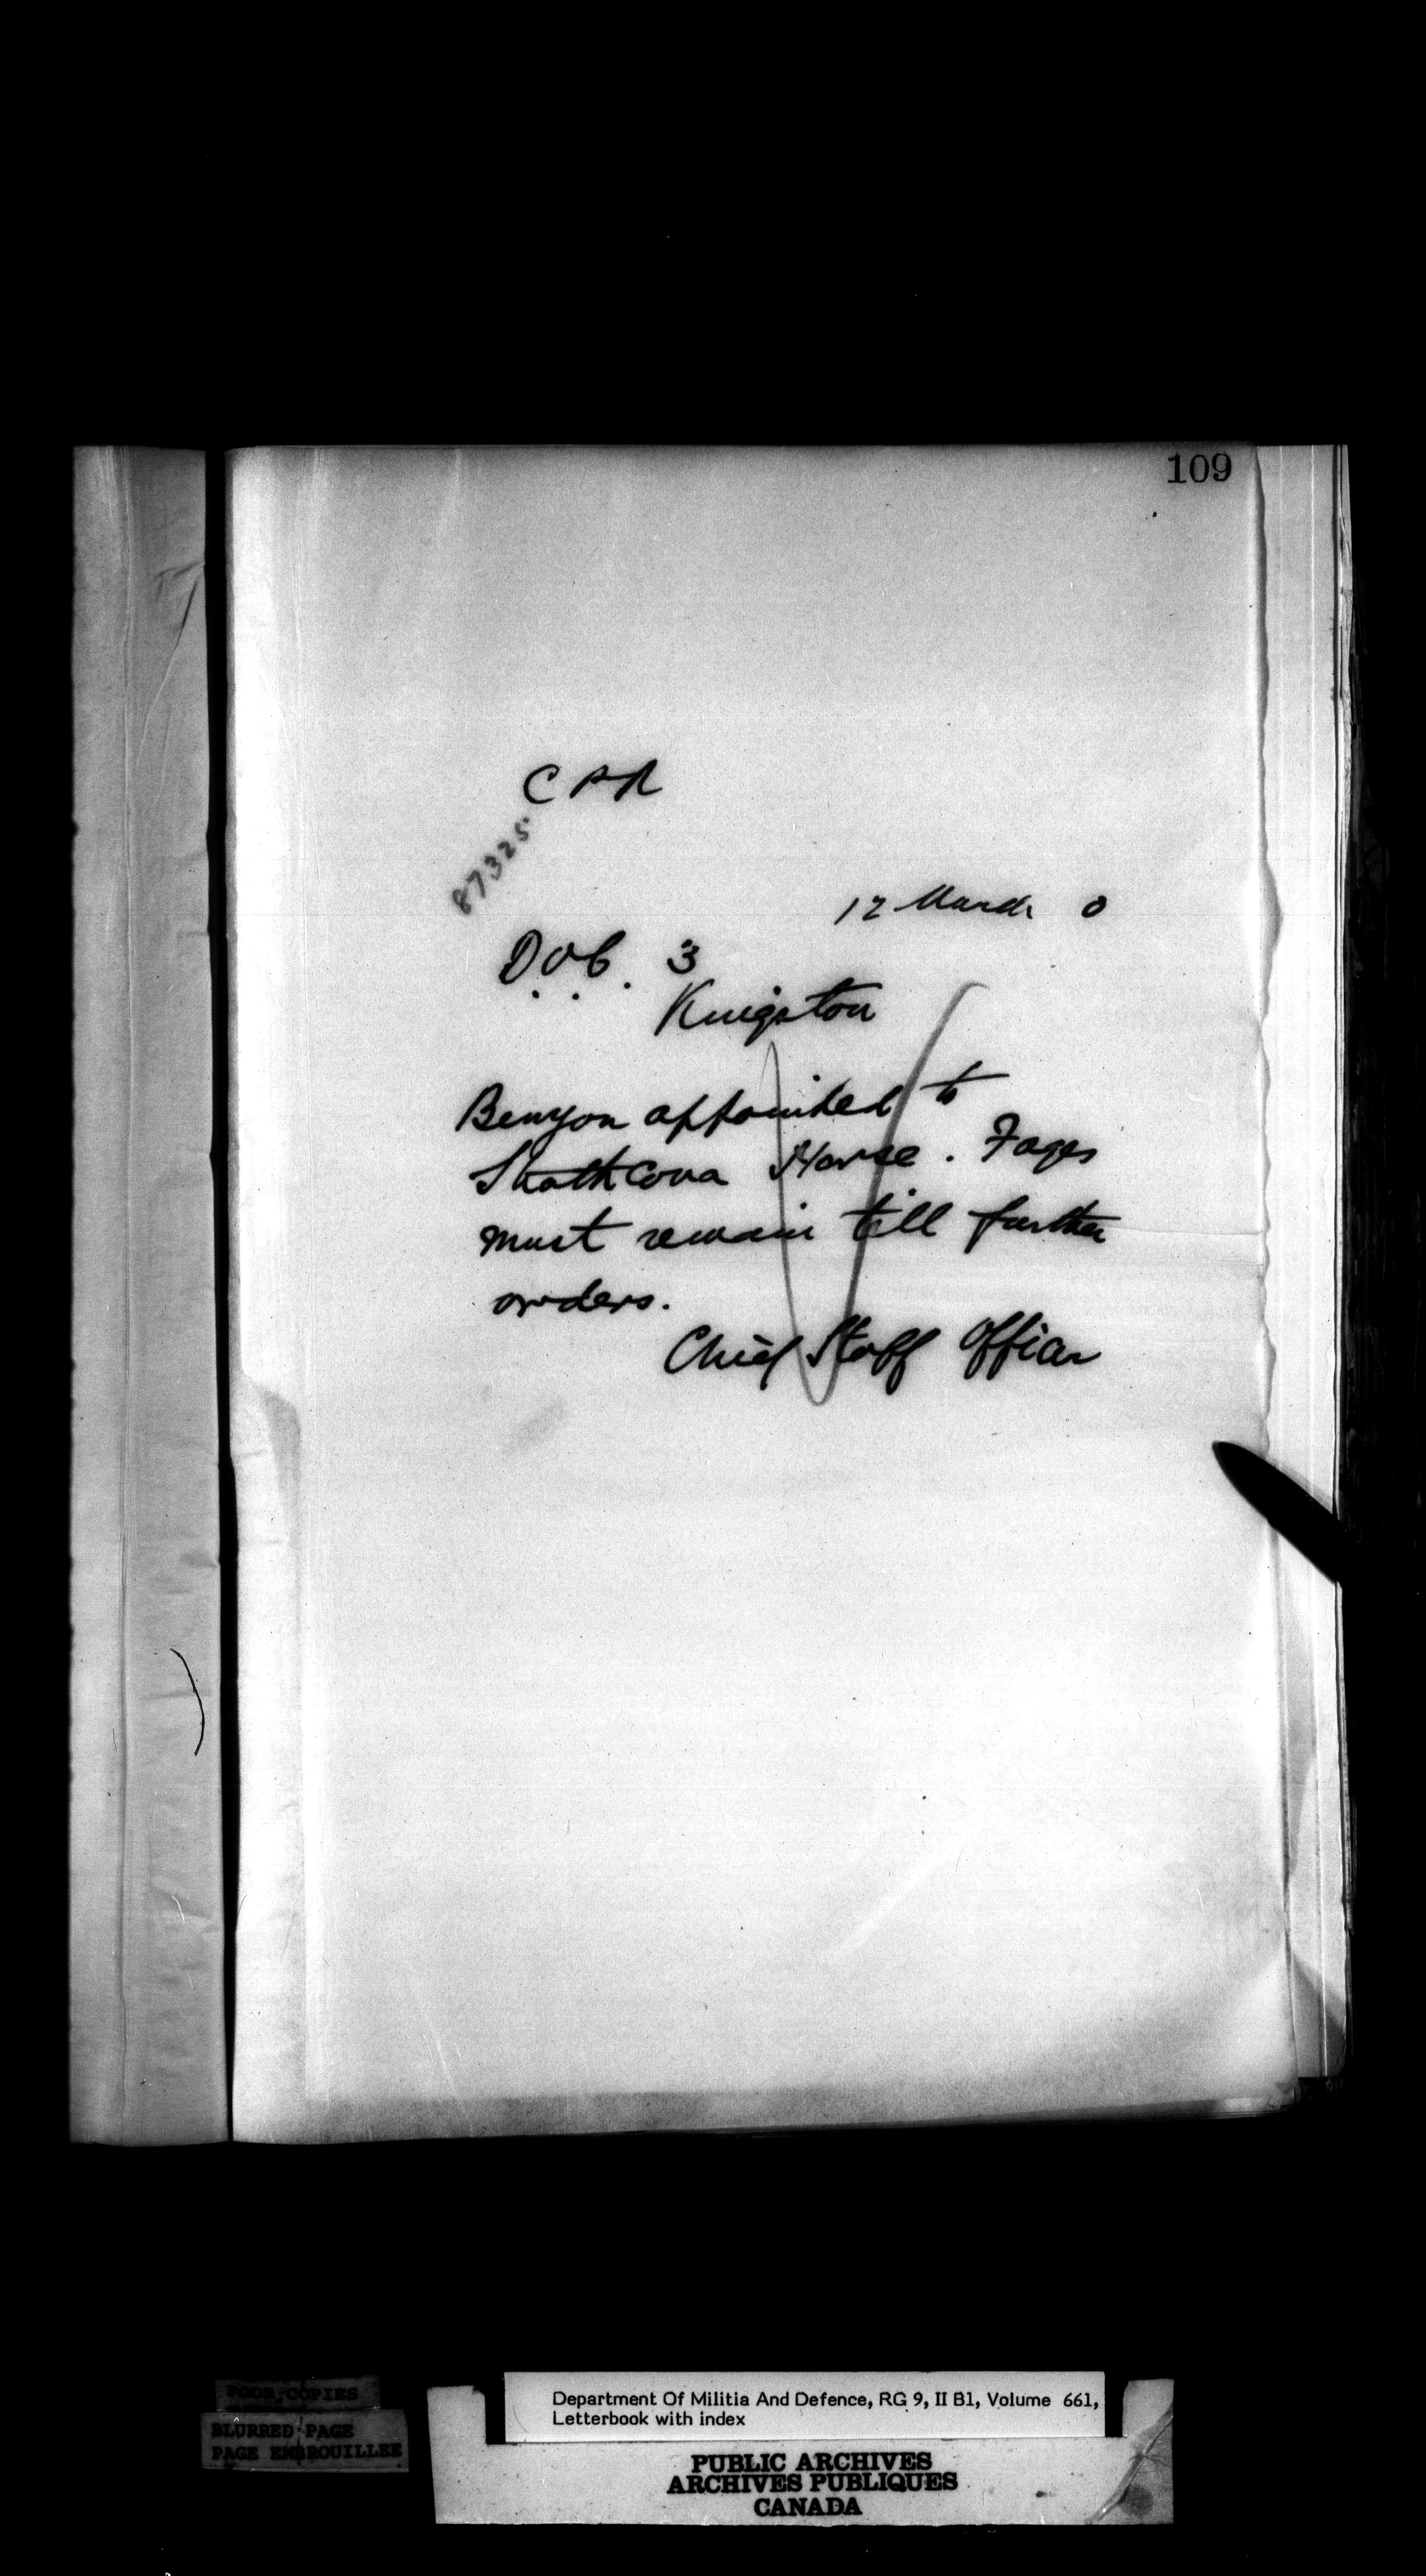 109
CPR
87325.
12 March 0
D.O.C. 3
Kingston
Benyon appointed to
Strathcona Horse. Fages
must remain till further
orders.
Chief Staff Officer
POOR COPIES
BLURRED PAGE
PAGE EMBROUILLEE
Department Of Militia And Defence, RG 9, II B1, Volume 661,
Letterbook with index
PUBLIC ARCHIVES
ARCHIVES PUBLIQUES
CANADA